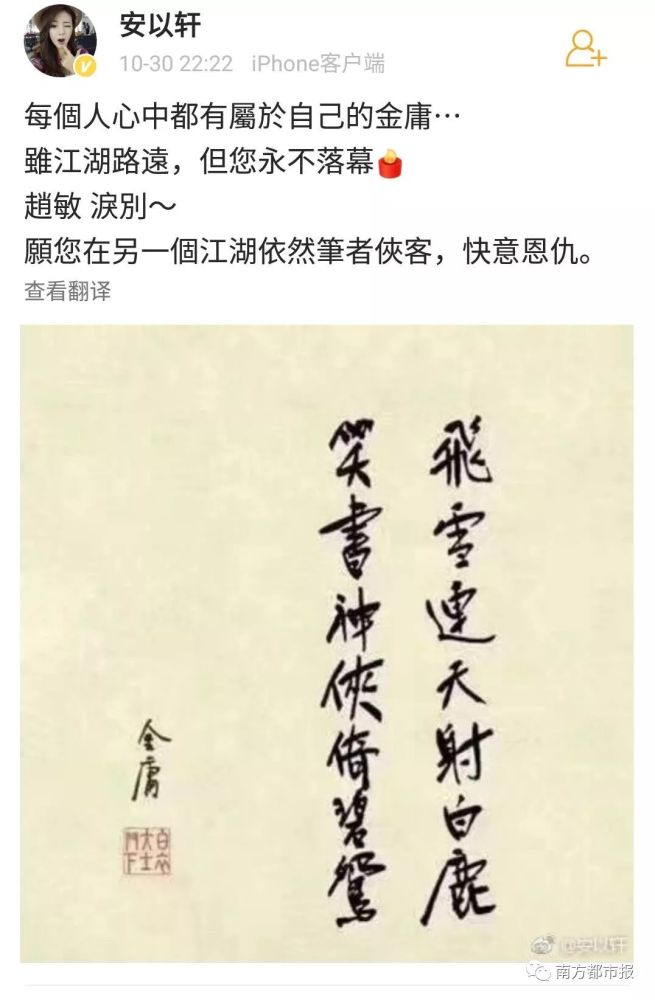 安以轩
10-30 22:22 iPhone客户端
每個人心中都有屬於自己的金庸…
雖江湖路遠，但您永不落幕
趙敏 淚別～
願您在另一個江湖依然筆者俠客，快意恩仇。
查看翻译
飛雪連天射白鹿
笑書神俠倚碧鴛
金庸
@安以轩
南方都市报